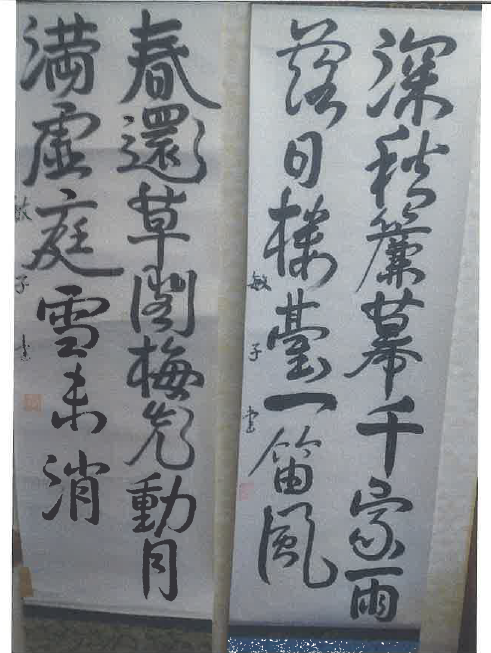 深秋簾幕千家雨
落日楼臺一笛風
敏子書
春還草閣梅先動月
満虚庭雪未消
敏子書